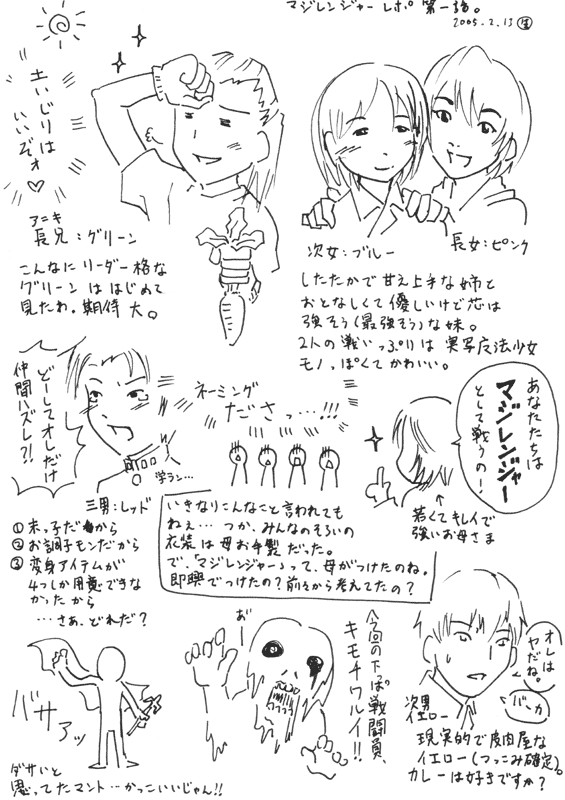 マジレンジャー レポ 第一話。
2005.2.13
土いじりは
いいぞォ♡
アニキ
長兄:グリーン
こんなにリーダー格な
グリーンははじめて
見たわ。期待大。
次女:ブルー
長女:ピンク
したたかで甘え上手な姉と
おとなしくて優しいけど芯は
強そう(最強そう)な妹。
2人の戦いっぷりは実写魔法少女
モノっぽくてかわいい。
どーしてオレだけ
仲間ハズレ?!
学ラン…
三男:レッド
① 末っ子だから
② お調子モンだから
③ 変身アイテムが
4つしか用意できな
かったから
…さぁ、どれだ?
ネーミング
ださっ…!!!
あなたたちは
マジレンジャー
として戦うのー!
若くてキレイで
強いお母さま
いきなりこんなこと言われても
ねぇ… つか、みんなのそろいの
衣装は母お手製だった。
で、「マジレンジャー」って、母がつけたのね。
即興でつけたの?前々から考えてたの?
バサァッ
ダサいと
思ってたマント…かっこいいじゃん!!
お゛
〈今回の下っぱ戦闘員、
キモチワルイ!!
オレは
ヤだね。
バーカ
次男
イエロー
現実的で皮肉屋な
イエロー(つっこみ確定)。
カレーは好きですか?